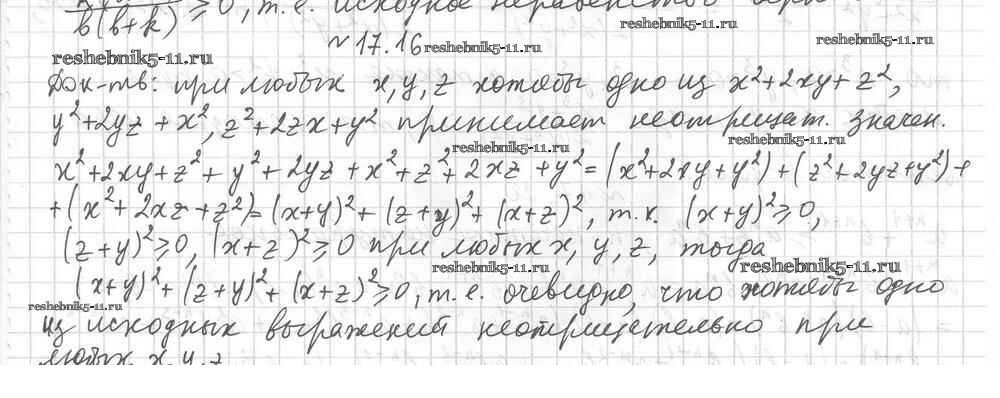 b(b+k) ≥ 0, т.е. исходное
reshebnik5-11.ru
№ 17.16 reshebnik5-11.ru
reshebnik5-11.ru
reshebnik5-11.ru
Док-ть: при любых x, y, z хотябы одно из x²+2xy+z²,
y²+2yz+x², z²+2zx+y² принимает неотрицат. значен.
reshebnik5-11.ru
reshebnik5-11.ru
x²+2xy+z²+y²+2yz+x²+z²+2xz+y²=(x²+2xy+y²)+(z²+2yz+y²)+
+(x²+2xz+z²)=(x+y)²+(z+y)²+(x+z)², т.к. (x+y)²≥0,
(z+y)²≥0, (x+z)²≥0 при любых x, y, z, тогда
reshebnik5-11.ru
reshebnik5-11.ru
(x+y)²+(z+y)²+(x+z)²≥0, т.е. очевидно, что хотябы одно
reshebnik5-11.ru
из исходных выражений неотрицательно при
любых x, y, z